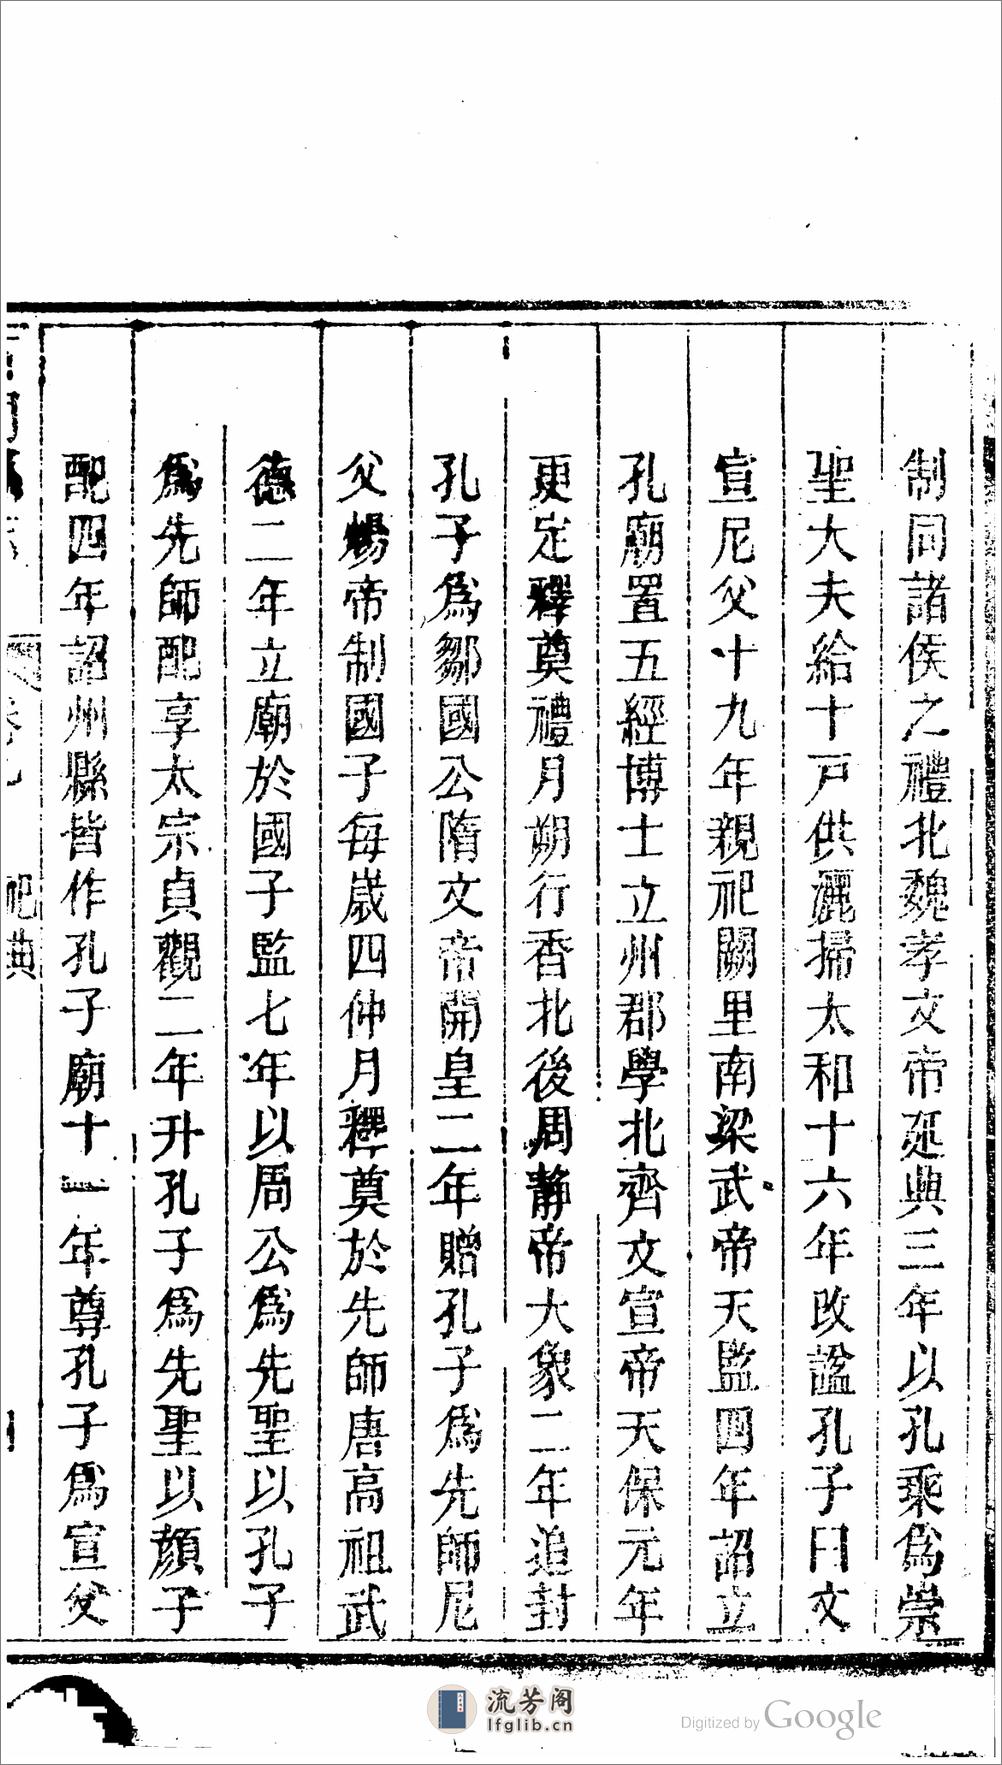 制同諸侯之禮北魏孝文帝延興三年以孔乘為崇
聖大夫給十戸供灑掃太和十六年改諡孔子曰文
宣尼父十九年親祀闕里南梁武帝天監四年詔立
孔廟置五經博士立州郡學北齊文宣帝天保元年
更定釋奠禮月朔行香北後周靜帝大象二年追封
孔子為鄒國公隋文帝開皇二年贈孔子為先師尼
父煬帝制國子每歲四仲月釋奠於先師唐高祖武
德二年立廟於國子監七年以周公為先聖以孔子
為先師配享太宗貞觀二年升孔子為先聖以顏子
配四年詔州縣皆作孔子廟十一年尊孔子為宣父
祀典
流芳阁
lfglib.cn
Digitized by Google